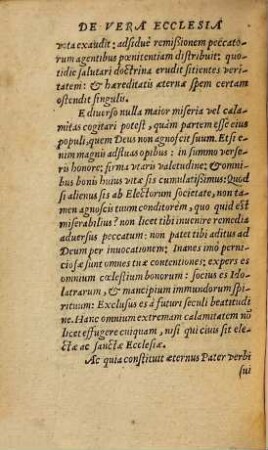 DE VERA ECCLESIA
vota exaudit: adsiduè remissionem peccato-
rum agentibus pœnitentiam distribuit: quo-
tidie salutari doctrina erudit sitientes veri-
tatem: & hæreditatis æternæ spem certam
ostendit singulis.
E diuerso nulla maior miseria vel cala-
mitas cogitari potest, quàm partem esse eius
populi, quem Deus non agnoscit suum. Etsi e-
nim magni adfluas opibus: in summo verse-
ris honore: firma vtaris valetudine: & omni-
bus bonis huius vitæ sis cumulatissimus: Quo
si alienus sis ab Electorum societate, non ta-
men agnoscis tuum conditorem, quo quid est
miserabilius? non licet tibi inuenire remedia
aduersus peccatum: non patet tibi aditus ad
Deum per inuocationem: Inanes imò perni-
ciosæ sunt omnes tuæ contentiones: expers es
omnium cœlestium bonorum: socius es Ido-
latrarum, & mancipium immundorum spi-
rituum: Exclusus es à futuri seculi beatitudi
ne. Hanc omnium extremam calamitatem nõ
licet effugere cuiquam, nisi qui ciuis sit ele-
ctæ ac sanctæ Ecclesiæ.
Ac quia constituit æternus Pater verbi
sui